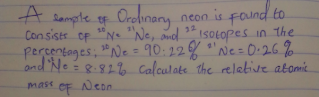 A sample of Ordinary neon is found to
consist of ²⁰Ne ²¹Ne, and ²² isotopes in the
percentages, ²⁰Ne = 90.22% ²¹Ne = 0.26%
and ²²Ne = 8.82% Calculate the relative atomic
mass of Neon